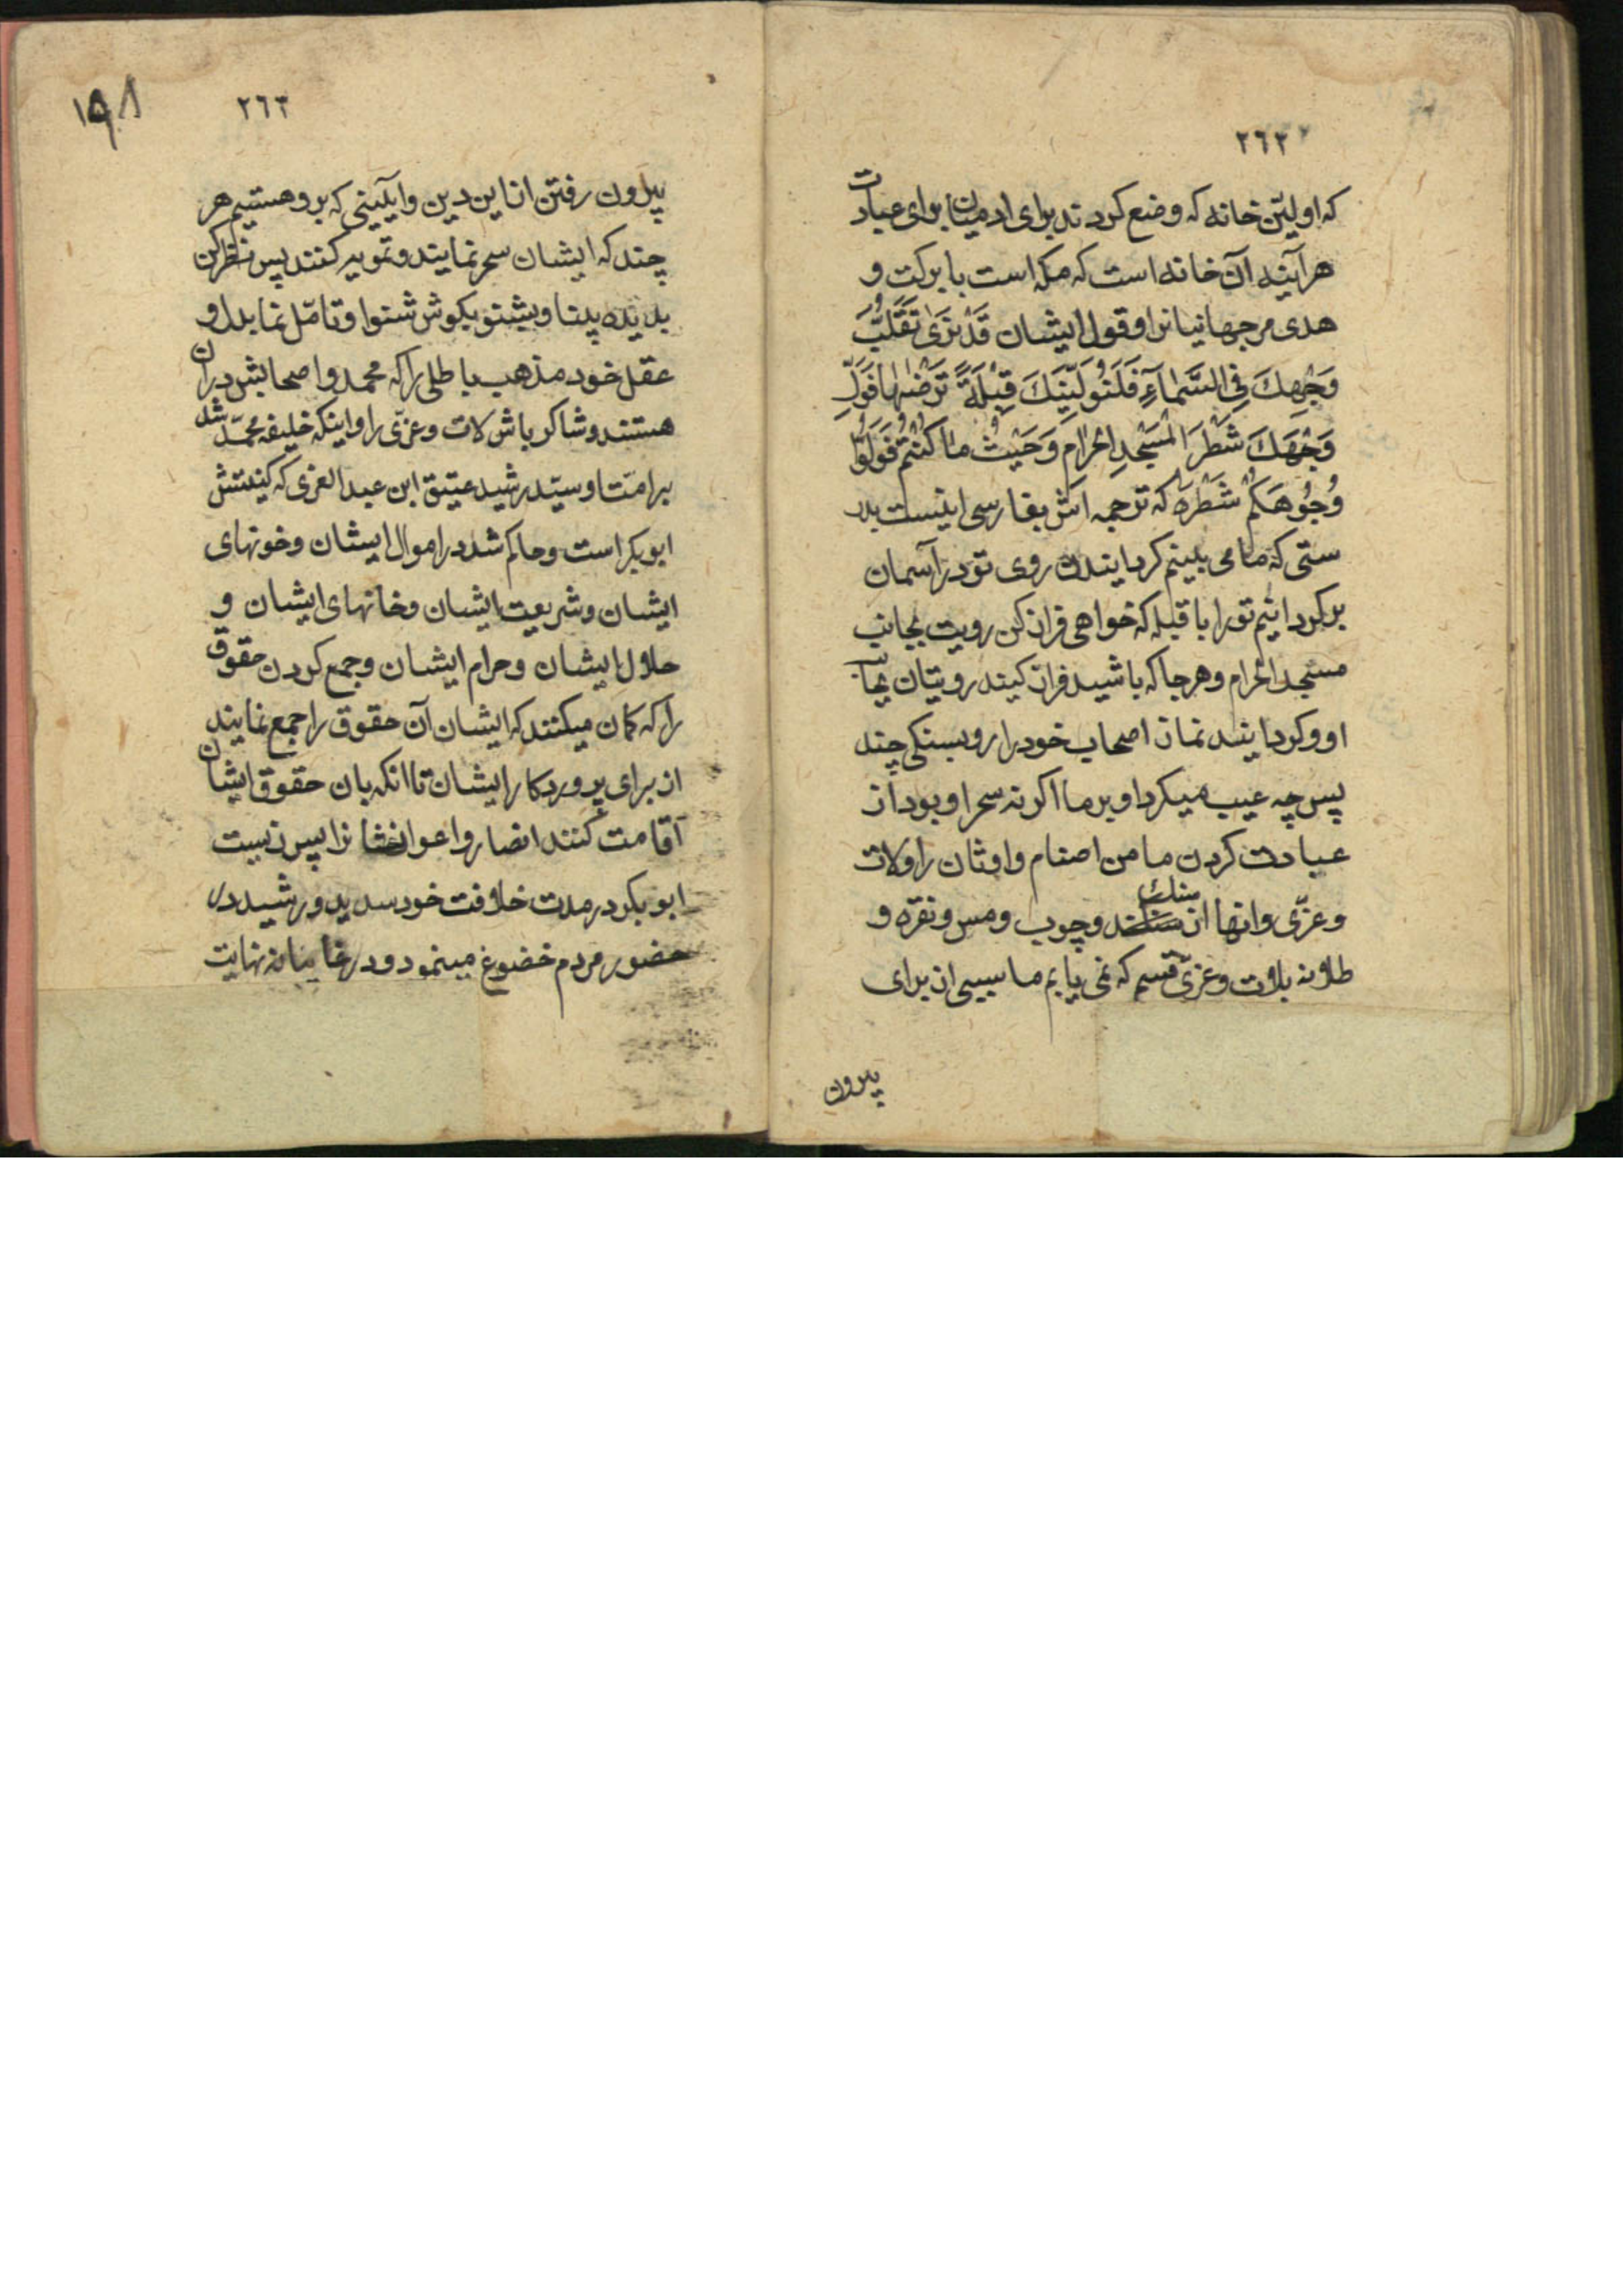 ٢٦٢
که اولین خانه که وضع کردند برای ادمیان برای عبادت
هر آینه آن خانه است که مکه است با برکت و
هدی مر جهانیانرا و قول ایشان قَدْ نَرٰی تَقَلُّبَ
وَجْهِكَ فِی السَّمَآءِ فَلَنُوَلِّیَنَّكَ قِبْلَةً تَرْضٰیهَا فَوَلِّ
وَجْهَكَ شَطْرَ الْمَسْجِدِ الْحَرٰامِ وَ حَیْثُ مٰا كُنْتُمْ فَوَلُّوا
وُجُوهَكُمْ شَطْرَهُ که ترجمه اش بفارسی اینست بدر
ستی که ما می بینیم کردایندن روی تو در آسمان
برکردانیم تو را با قبله که خواهی فراز کن رویت بجانب
مسجد الحرام و هر جا که باشید فراز کنید رویتان بجانب
او و کردانید نماز اصحاب خود را رو بسنکی چند
پس چه عیب میکرد او بر ما اکر نه سحر او بود از
عبادت کردن ما من اصنام و اوثان را و لات
و عزّی و انها از سنك سنند و چوب و مس و نقره و
طلا نه بلات و عزّی قسم که نمی یابم ما سببی از برای
بیرون
٢٦٣
١٥٨
بیرون رفتن از این دین و آیینی که بر او هستیم هر
چند که ایشان سحر نمایند و تمویه کنند پس نظر کن
بدیده بینا و بشنو بکوش شنوا و تامّل نما بدل و
عقل خود مذهب باطلی را که محمد و اصحابش در ان
هستند و شاکر باش لات و عزّی را و اینکه خلیفه محمّد شد
بر امت او سیّد رشید عتیق ابن عبد العزی که کنیتش
ابو بکر است و حاکم شد در اموال ایشان و خونهای
ایشان و شریعت ایشان و خانهای ایشان و
حلال ایشان و حرام ایشان و جمع کردن حقوق
را که کمان میکنند که ایشان آن حقوق را جمع نمایند
از برای پروردکار ایشان تا انکه بان حقوق ایشان
آقامت کنند انصار و اعوانشانرا پس زیست
ابو بکر در مدت خلافت خود سدید و رشید در
حضور مردم خضوع مینمود و در غایبانه نهایت